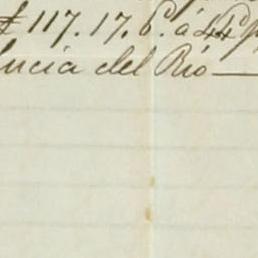 £ 117.17.6. á 44 p
lucia del Rió —